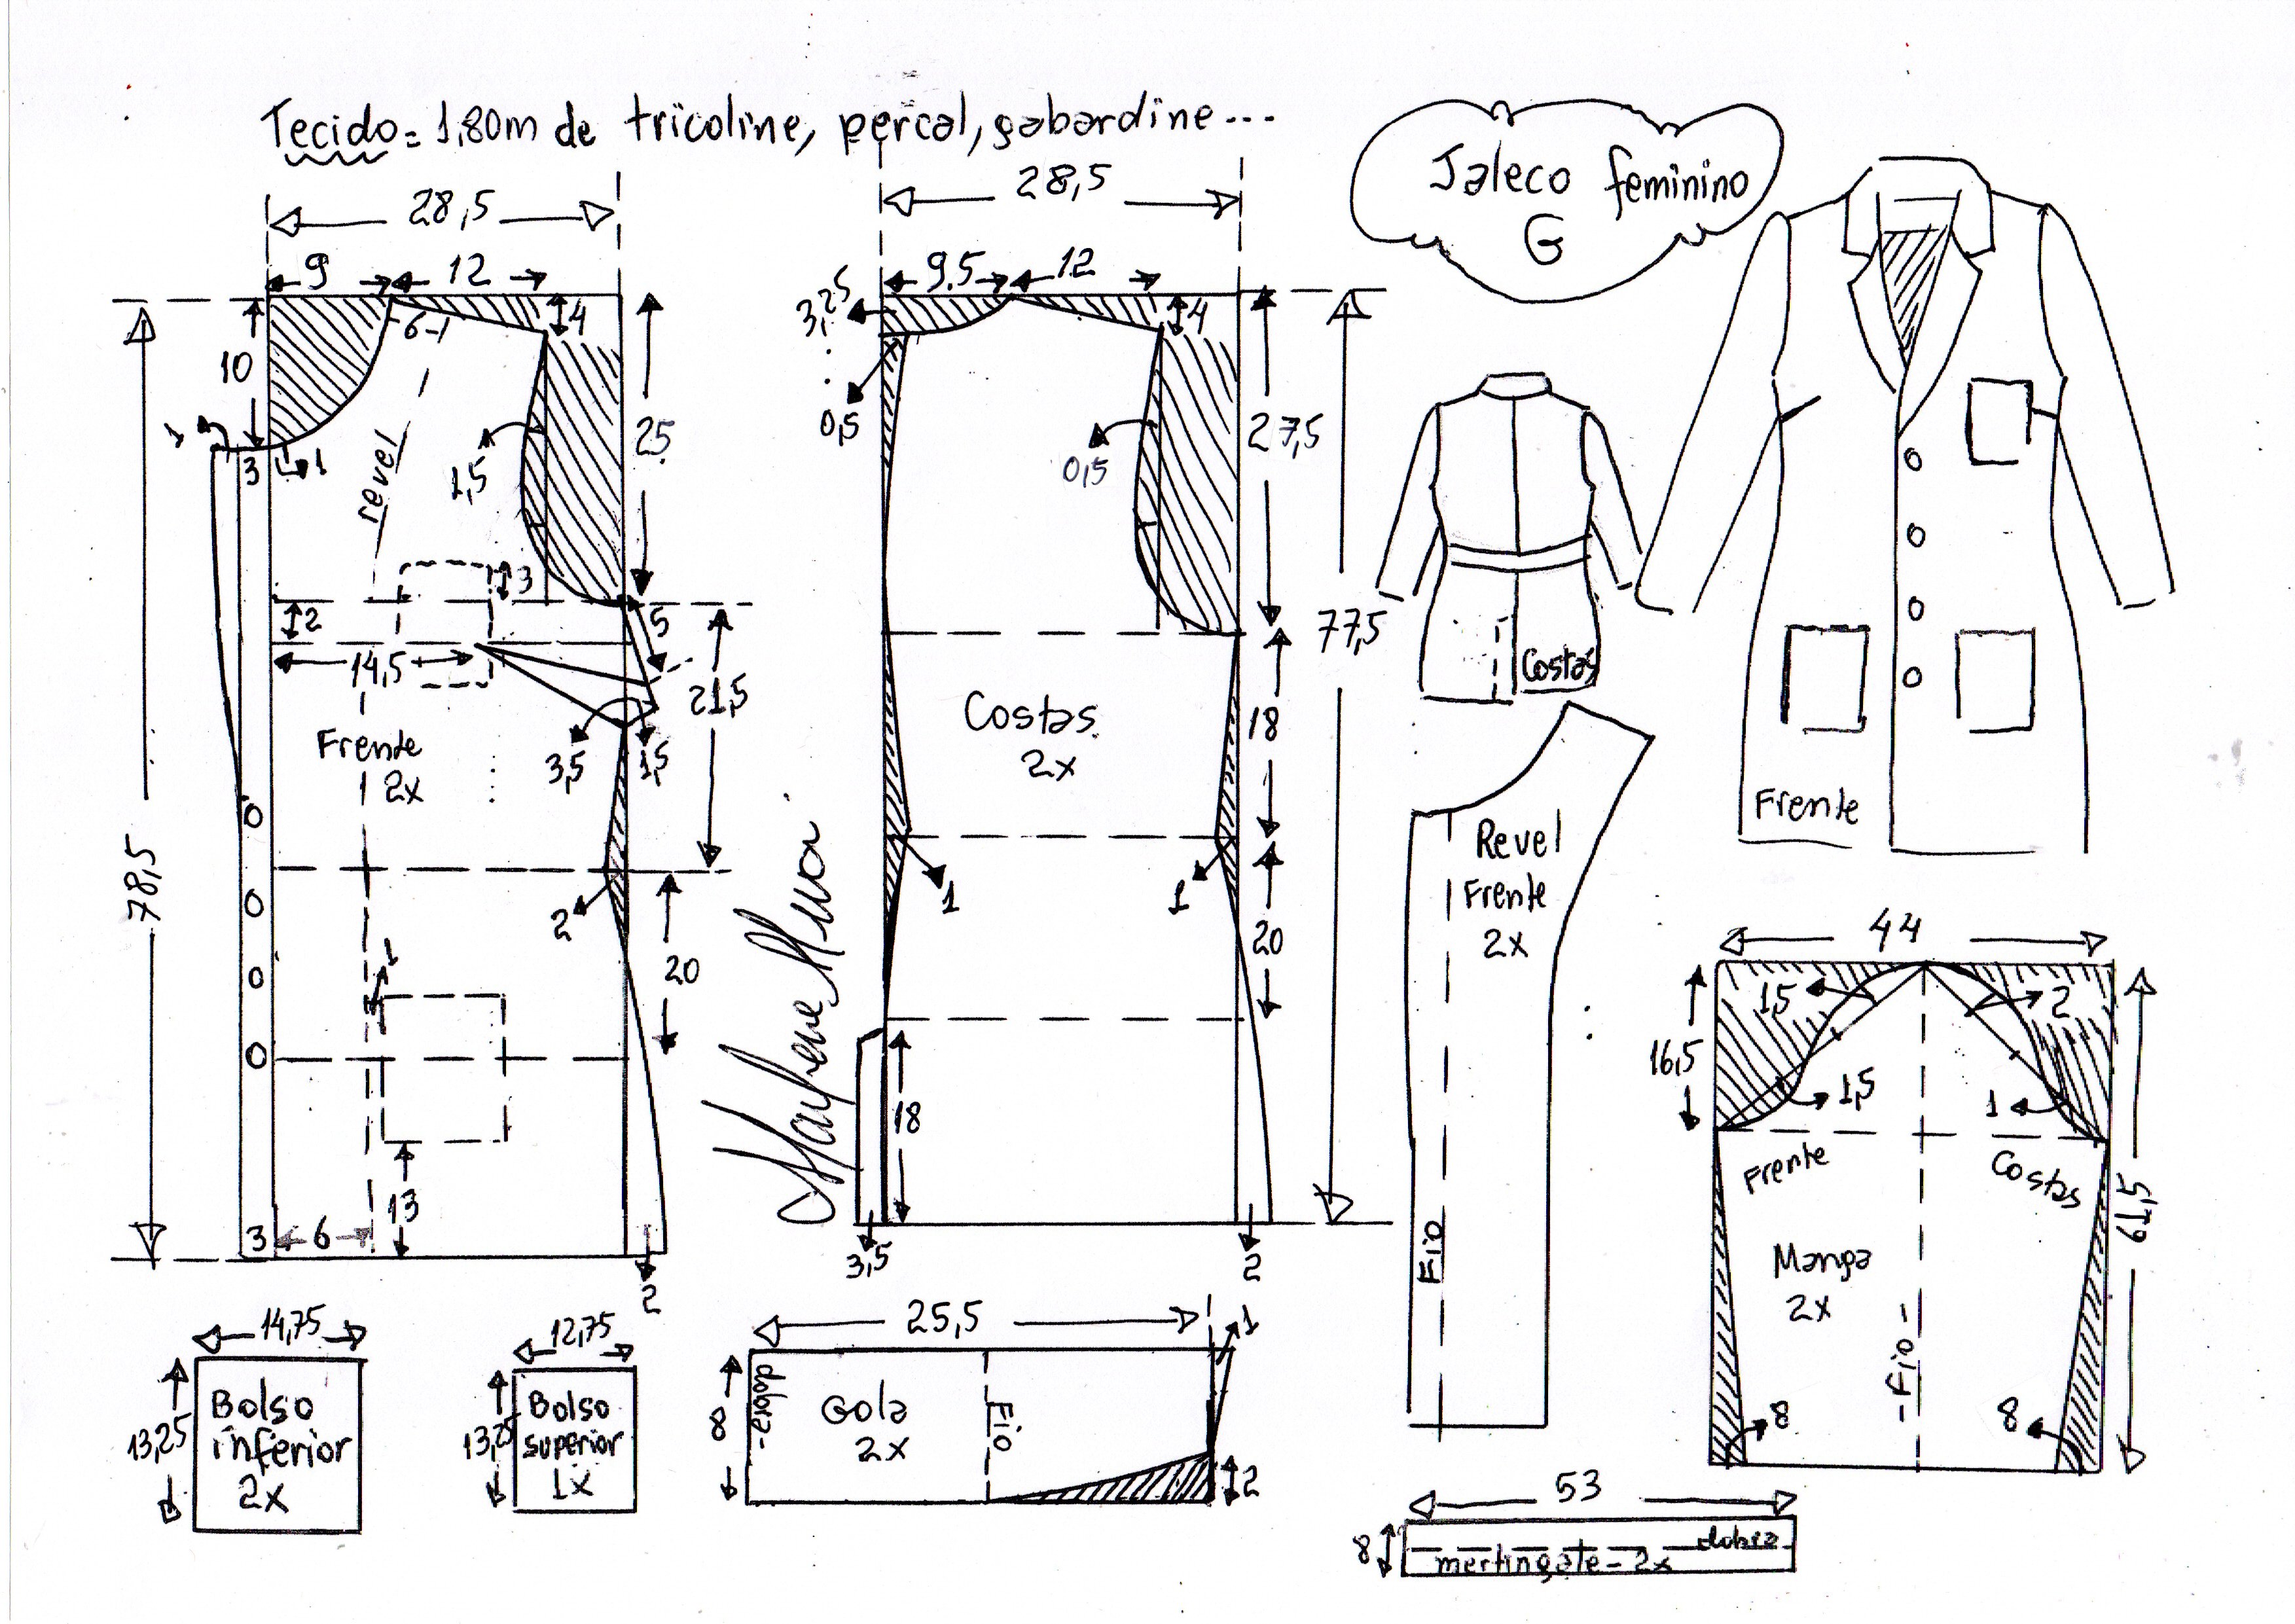 Tecido= 1,80m de tricoline, percal, gabardine...
Jaleco feminino
G
28,5
9
12
4
6
10
1
3
1
revel
1,5
25
3
2
5
14,5
21,5
3,5
1,5
Frente
2x
78,5
2
20
1
13
3
6
2
28,5
9,5
12
3,25
4
0,5
0,5
27,5
77,5
Costas
2x
18
1
1
20
18
3,5
2
Costas
Frente
Revel
Frente
2x
Fio
44
1,5
2
16,5
1,5
1
Frente
Costas
61,5
Manga
2x
-Fio-
8
8
14,75
13,25
Bolso
inferior
2x
12,75
13,25
Bolso
superior
1x
25,5
1
8
dobra-
Gola
2x
Fio
2
53
8
dobra
mertingate-2x